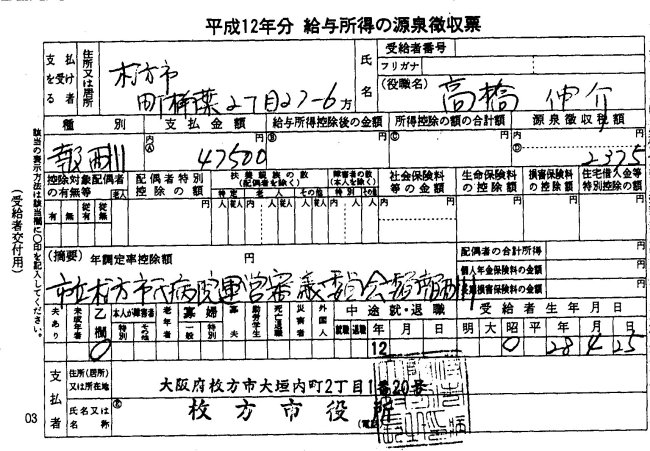 平成12年分 給与所得の源泉徴収票
支払を受ける者
住所又は居所
枚方市
町楠葉2丁目27-6
氏名
受給者番号
フリガナ
(役職名) 高橋 仲介
種別 支払金額 給与所得控除後の金額 所得控除の額の合計額 源泉徴収税額
報酬 内 円 Ⓐ 47500 Ⓑ 円 Ⓒ 円 内 円 Ⓓ 2375
控除対象配偶者の有無等 老人 配偶者特別控除の額 扶養親族の数(配偶者を除く) 特定 老人 その他 障害者の数(本人を除く) 特別 その他 社会保険料等の金額 生命保険料の控除額 損害保険料の控除額 住宅借入金等特別控除の額
有 無 従有 従無 円 人 従人 内 人 従人 人 従人 内 人 人 内 円 円 円 円
(摘要) 年調定率控除額 円
配偶者の合計所得 円
個人年金保険料の金額 円
長期損害保険料の金額 円
市立枚方市民病院運営審議委員会報酬
夫あり 未成年者 乙欄 本人が障害者 特別 その他 老年者 寡婦 一般 特別 寡夫 勤労学生 死亡退職 災害者 外国人 中途就・退職 就職 退職 年 月 日 受給者生年月日 明 大 昭 平 年 月 日
○ 12 ○ 28 4 25
支払者
住所(居所)又は所在地
大阪府枚方市大垣内町2丁目1番20号
氏名又は名称
枚方市役所
(電話)
03
(受給者交付用)
該当の表示方法は該当欄に○印を記入してください。